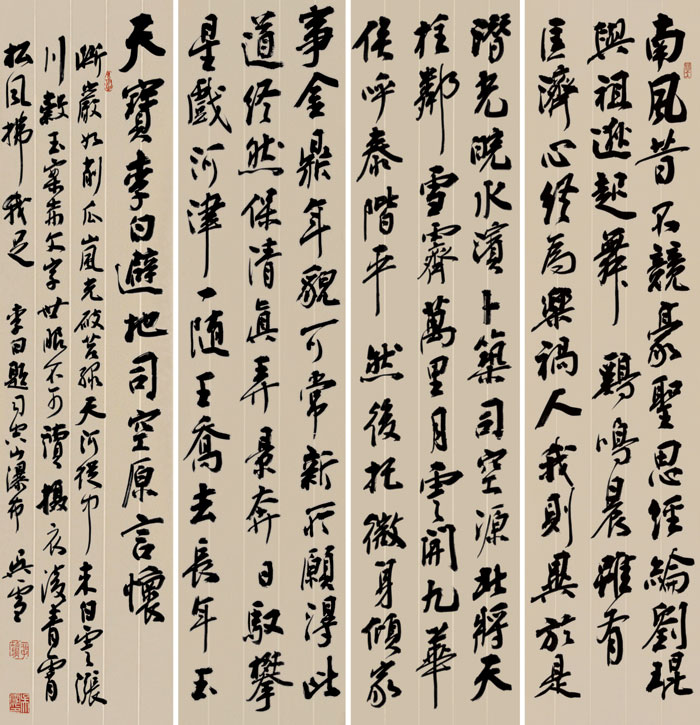 南風昔不競豪聖思經綸劉琨
與祖逖起舞鷄鳴晨雖有
匡濟心終為樂禍人我則異於是
潛光皖水濱卜築司空源北將天
柱鄰雪霽萬里月雲開九華
俟呼泰階平然後托微身傾家
事金鼎年貌可常新所願得此
道終然保清真弄景奔日馭攀
星戲河津一隨王喬去長年玉
天寶李白避地司空原言懷
斷巖如削瓜嵐光破苔綠天河從中來白雲漲
川穀玉案赤文字世眼不可讀攝衣凌青霄
松風拂我足 李白題司空山瀑布 吳雪